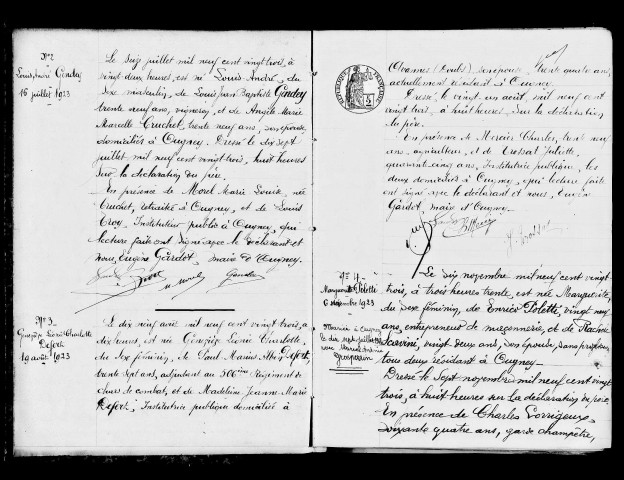 N° 2
Louis André Gendey
16 juillet 1923
Le seize juillet mil neuf cent vingt trois, à
vingt deux heures, est né Louis André, du
sexe masculin, de Louis Jean Baptiste Gendey
trente neuf ans, vigneron, et de Angèle Marie
Marcelle Cruchet, trente neuf ans, son épouse,
domiciliés à Cugney. Dressé le dix sept
juillet mil neuf cent vingt trois, huit heures
sur la déclaration du père.
En présence de Morel Marie Louise, née
Cruchet, retraitée à Cugney, et de Louis
Croy, Instituteur public à Cugney, qui,
lecture faite ont signé avec le déclarant et
nous, Eugène Gardot, maire de Cugney.
N° 3
Geneviève Léonie Charlotte
Defert
19 août 1923
Le dix neuf août mil neuf cent vingt trois, à
dix heures, est née Geneviève Léonie Charlotte,
du sexe féminin, de Paul Marius Albert Defert
trente sept ans, adjudant au 506ème Régiment de
chars de combat, et de Madeleine Jeanne Marie
Institutrice publique domiciliée à
REPUBLIQUE FRANÇAISE
(Doubs), son épouse, trente quatre ans,
actuellement résidant à Cugney.
Dressé le vingt un août, mil neuf cent
vingt trois, à huit heures sur la déclaration
du père.
En présence de Mercier Charles, trente neuf
ans, agriculteur et de Juliette
quarante cinq ans, Institutrice publique, les
deux domiciliés à Cugney, qui lecture faite
ont signé avec le déclarant et nous, Eugène
Gardot, maire d'Cugney.
N° 4
Marguerite Poletti
6 novembre 1923
Mariée à Cugney
le dix sept juillet
avec
Le six novembre mil neuf cent vingt
trois, à trois heures trente, est née Marguerite,
du sexe féminin, de Enrico Poletti, vingt neuf
ans, entrepreneur de maçonnerie, et de
Scarini, vingt deux ans, son épouse, sans profession
tous deux résidant à Cugney.
Dressé le sept novembre mil neuf cent vingt
trois, à huit heures sur la déclaration du père.
En présence de Charles Corrigeux,
soixante quatre ans, garde champêtre,